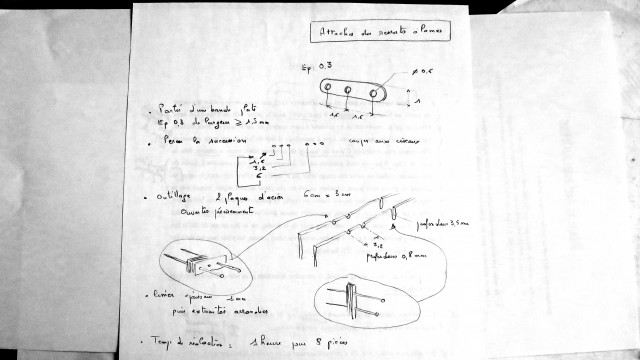 Attaches des ressorts à lames
Ep. 0,3
Ø 0,5
1
1,6 1,6
. Partir d'une bande plate
Ep 0,3 de largeur ≥ 1,5 mm
. Percer la succession couper aux ciseaux
1,6
3,2
6
. Outillage 2 plaques d'acier 6 cm × 3 cm
Ouvertes précisément
perfos diam 3,5 mm
3,2
perfos diam 0,8 mm
. Limer épaisseur 1 mm
puis extrémités arrondies
. Temps de réalisation : 1 heure pour 8 pièces